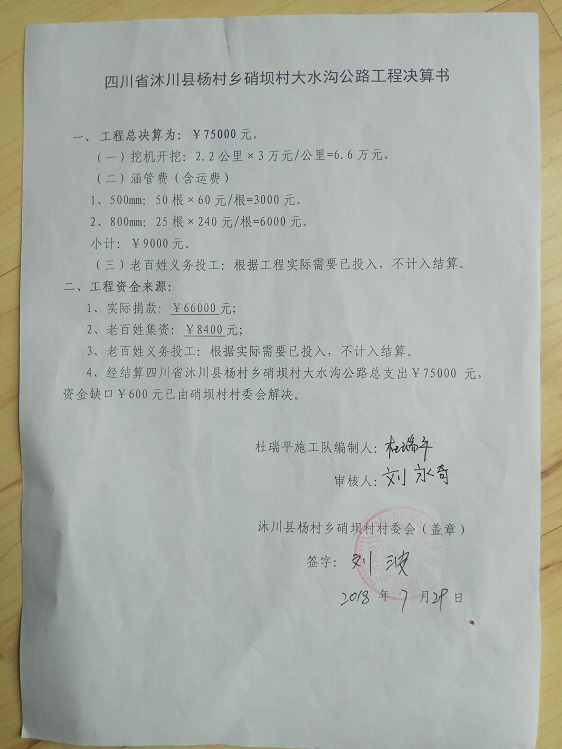 四川省沐川县杨村乡硝坝村大水沟公路工程决算书
一、工程总决算为：￥75000元。
（一）挖机开挖：2.2公里×3万元/公里=6.6万元。
（二）涵管费（含运费）
1、500mm：50根×60元/根=3000元。
2、800mm：25根×240元/根=6000元。
小计：￥9000元。
（三）老百姓义务投工：根据工程实际需要已投入，不计入结算。
二、工程资金来源：
1、实际捐款：￥66000元；
2、老百姓集资：￥8400元；
3、老百姓义务投工：根据实际需要已投入，不计入结算。
4、经结算四川省沐川县杨村乡硝坝村大水沟公路总支出￥75000元，
资金缺口￥600元已由硝坝村村委会解决。
杜瑞平施工队编制人：杜瑞平
审核人：刘永奇
沐川县杨村乡硝坝村村委会（盖章）
签字：刘波
2018年7月29日